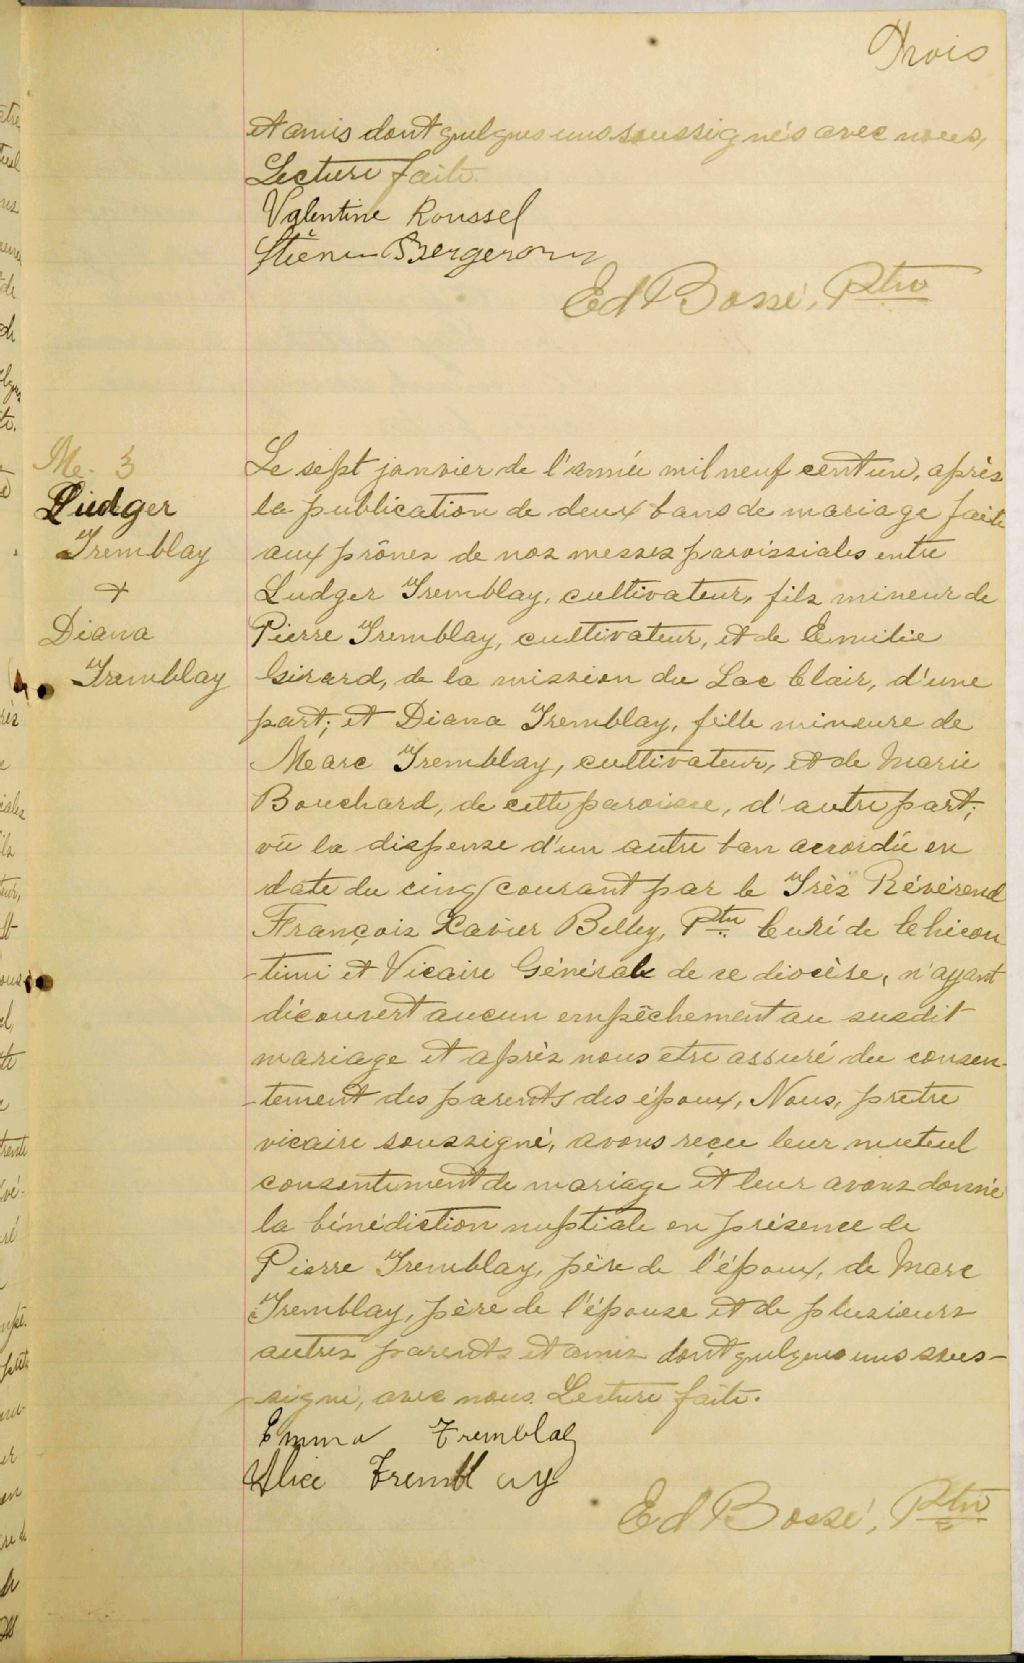 Trois
et amis dont quelques uns soussignés avec nous,
Lecture faite.
Valentine Roussel
Bergeron
Ed Bossé, Ptre
M. 3
Ludger
Tremblay
+
Diana
Tremblay
Le sept janvier de l'année mil neuf cent un, après
la publication de deux bans de mariage faite
aux prônes de nos messes paroissiales entre
Ludger Tremblay, cultivateur, fils mineur de
Pierre Tremblay, cultivateur, et de Emilie
Girard, de la mission du Lac Clair, d'une
part; et Diana Tremblay, fille mineure de
Marc Tremblay, cultivateur, et de Marie
Bouchard, de cette paroisse, d'autre part;
vû la dispense d'un autre ban accordée en
date du cinq courant par le Très Révérend
François Xavier Belley, Ptre Curé de Chicou
-timi et Vicaire Général de ce diocèse, n'ayant
découvert aucun empêchement au susdit
mariage et après nous être assuré du consen-
-tement des parents des époux, Nous, prêtre
vicaire soussigné, avons reçu leur mutuel
consentement de mariage et leur avons donné
la bénédiction nuptiale en présence de
Pierre Tremblay, père de l'époux, de Marc
Tremblay, père de l'épouse et de plusieurs
autres parents et amis dont quelques uns sous-
-signé, avec nous. Lecture faite.
Emma Tremblay
Alice Tremblay
Ed Bossé, Ptre